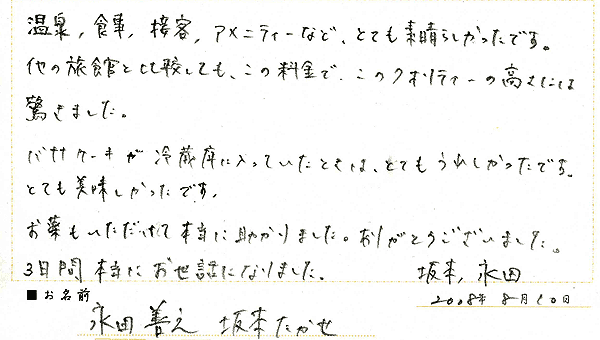 温泉,食事,接客,アメニティーなど、とても素晴らしかったです。
他の旅館と比較しても、この料金で、このクオリティーの高さには
驚きました。
バサケーキが冷蔵庫に入っていたときは、とてもうれしかったです。
とても美味しかったです。
お薬もいただけて本当に助かりました。ありがとうございました。
3日間本当にお世話になりました。 坂本,永田
■お名前 2008年8月10日
永田善え 坂本たかせ